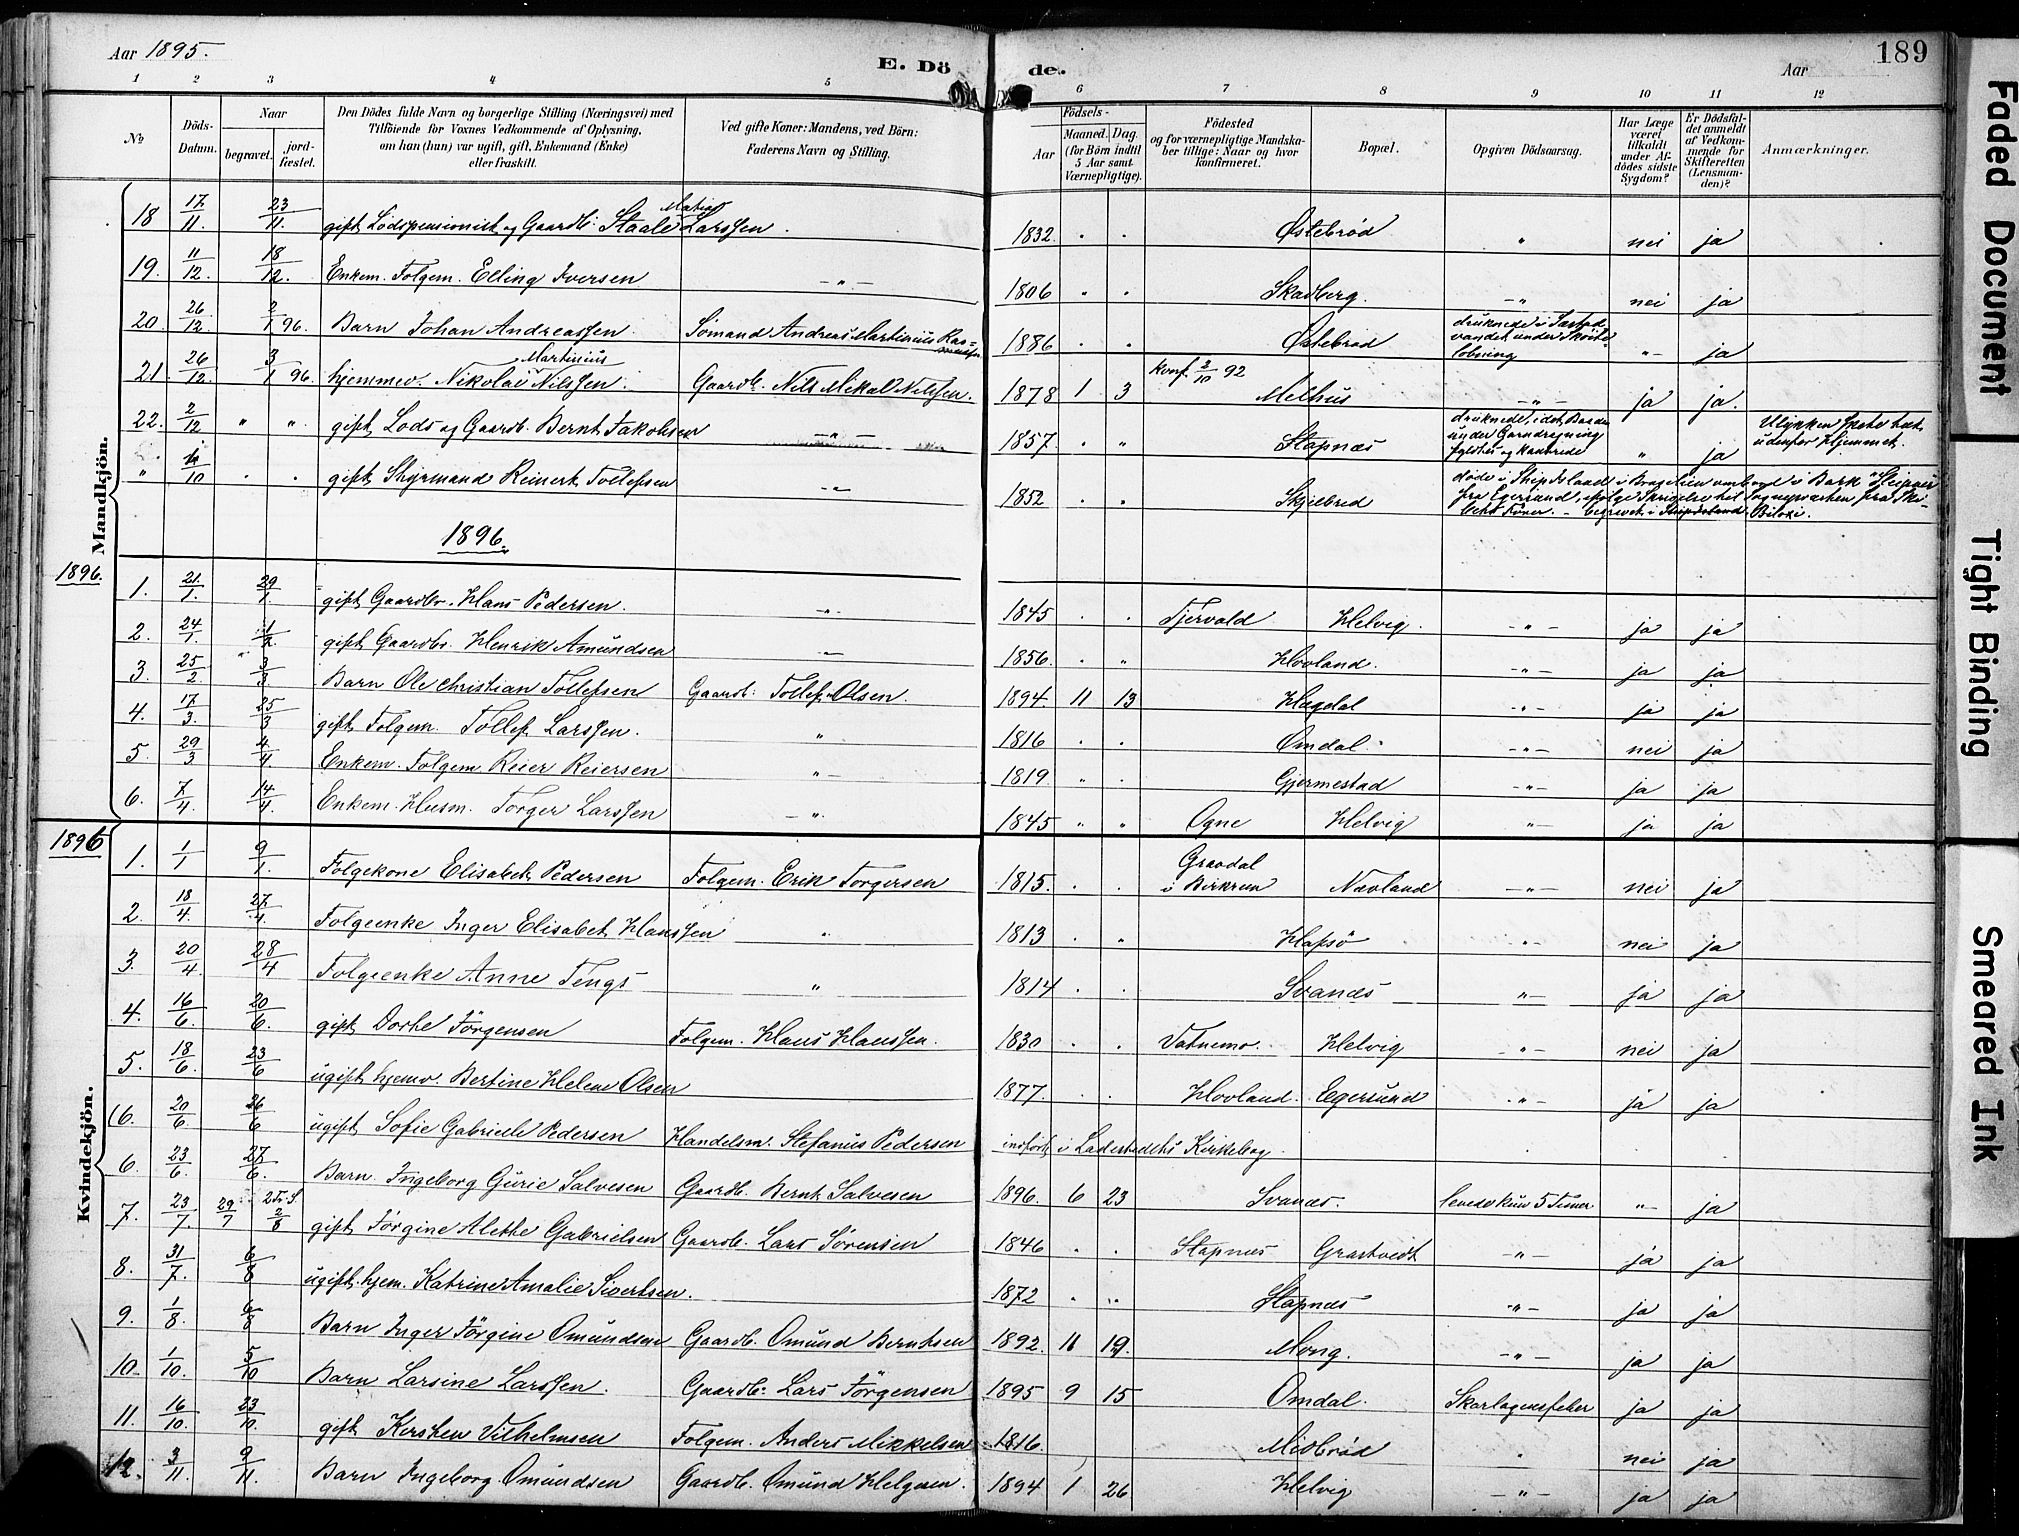 Aar 1895.
E. Dö
de.
Aar
189
1 2 3 4 5 6 7 8 9 10 11 12
№
Döds-Datum.
Naar
begravet.
jord-fæstet.
Den Dödes fulde Navn og borgerlige Stilling (Næringsvei) med
Tilföiende for Voxnes Vedkommende af Oplysning,
om han (hun) var ugift, gift, Enkemand (Enke)
eller fraskilt.
Ved gifte Koner: Mandens, ved Börn:
Faderens Navn og Stilling.
Födsels-
Aar
Maaned.
Dag.
(for Börn indtil
5 Aar samt
Værnepligtige).
Födested
og for værnepligtige Mandska-
ber tillige: Naar og hvor
konfirmeret.
Bopæl.
Opgiven Dödsaarsag.
Har Læge
været
tilkaldt
under Af-
dödes sidste
Sygdom?
Er Dödsfal-
det anmeldt
af Vedkom-
mende for
Skifteretten
(Lensman-
den)?
Anmærkninger.
Mandkjön.
18 17/11. 23/11. gift Lodspensionist og Gaardb. Staale Matias Larssen 1832. Østebrød " nei ja
19. 11/12. 18/12. Enkem. Folgem. Elling Iversen – " – 1806 Skadberg. – " – nei ja
20. 26/12 2/1 96. Barn Johan Andreassen. Sömand Andreas Martinius Rasmussen 1886 Østebrød druknede i vandet under Skøite-løbning " – ja
21. 26/12. 3/1 96. hjemmev. Nikolai Martinius Nilssen. Gaardb. Nils Mikal Nilssen. 1878 1 3 Konf. 2/10 92 Melhus – " – ja ja.
22. 2/12 " " gift Lods og Gaardb. Bernt Jakobsen – " – 1857. Stapnæs druknede, idet Baaden under Garndragning fyldtes og kantrede " ja Ulykken skete tæt udenfor Hjemmet.
" 10 gift Styrmand Reinert Tollefsen – " – 1852 Skjelbred døde i Ship Island i ombord i Bark "Sleipner" fra Egersund, ifølge Skrivelse til Sognepræsten fra – begravet i Biloxi.
1896.
1896.
1. 21/1. 29/1. gift Gaardbr. Hans Pedersen. – " – 1845 Tjervald Helvig. – " – ja ja
2. 24/1. 1/2 gift Gaardbr. Henrik Amundsen – " – 1856. Hovland. – " – ja ja
3. 25/2 3/3. Barn Ole Christian Tollefsen Gaardb. Tollef Olsen. 1894 11 13 Hegdal – " – ja ja
4. 17/3. 25/3 gift Folgem. Tollef Larssen. " 1816 Omdal. – " – nei ja
5. 29/3 4/4. Enkem. Folgem. Reier Reiersen " – 1819. Gjermestad – " – ja ja
6. 7/4. 14/4. Enkem. Husm. Torger Larssen – " 1845 Ogne Helvig " – ja ja
1896
Kvindekjön.
1. 1/1 9/1. Folgekone Elisabet Pedersen Folgem. Erik Torgersen 1815. Gravdal i Birkrem Nævland – " – nei ja
2. 18/4. 27/4. Folgeenke Inger Elisabet Hanssen " 1813 Hafsö " – nei ja
3. 20/4. 28/4 Folgeenke Anne Tengs " 1814 Svanæs " – ja ja
4. 16/6. 20/6. gift Dorte Jörgensen Folgem. Hans Hanssen. 1830 Vatnemo. Helvig " – nei ja
5. 18/6. 23/6 ugift hjemv. Bertine Helene Olsen 1877. Hovland. Egersund " – ja ja
(6. 20/6 26/6 ugift Sofie Gabriele Pedersen Handelsm. Stefanus Pedersen indført i Ladestedets Kirkebog.
6. 23/6. 27/6. Barn Ingeborg Gurie Salvesen Gaardb. Bernt Salvesen 1896. 6 23 Svanæs. levede kun 5 Timer " – ja
7. 23/7. 29/7 2/8 gift Jörgine Alette Gabrielsen Gaardb. Lars Sörensen 1846 Stapnæs Grastvedt – " – ja ja
8. 31/7. 6/8 ugift. hjem. Katrine Amalie Sivertsen. 1872 Stapnæs – " – ja ja
9. 1/8. 6/8 Barn Inger Jörgine Omundsen Gaardb. Omund Berntsen 1892. 11 19. Mong. – " – ja ja
10. 1/10. 5/10 Barn Larsine Larssen. Gaardb. Lars Jörgensen 1895 9 15 Omdal. Skarlagensfeber ja ja
11. 16/10. 23/10. gift Kersten Vilhelmsen Folgem. Anders Mikkelsen 1816. Midbrød " nei ja
12. 3/11. 9/11. Barn Ingeborg Omundsen Gaardb. Omund Helgesen. 1894 1 26 Helvig – " – ja ja
Faded Document
Tight Binding
Smeared Ink